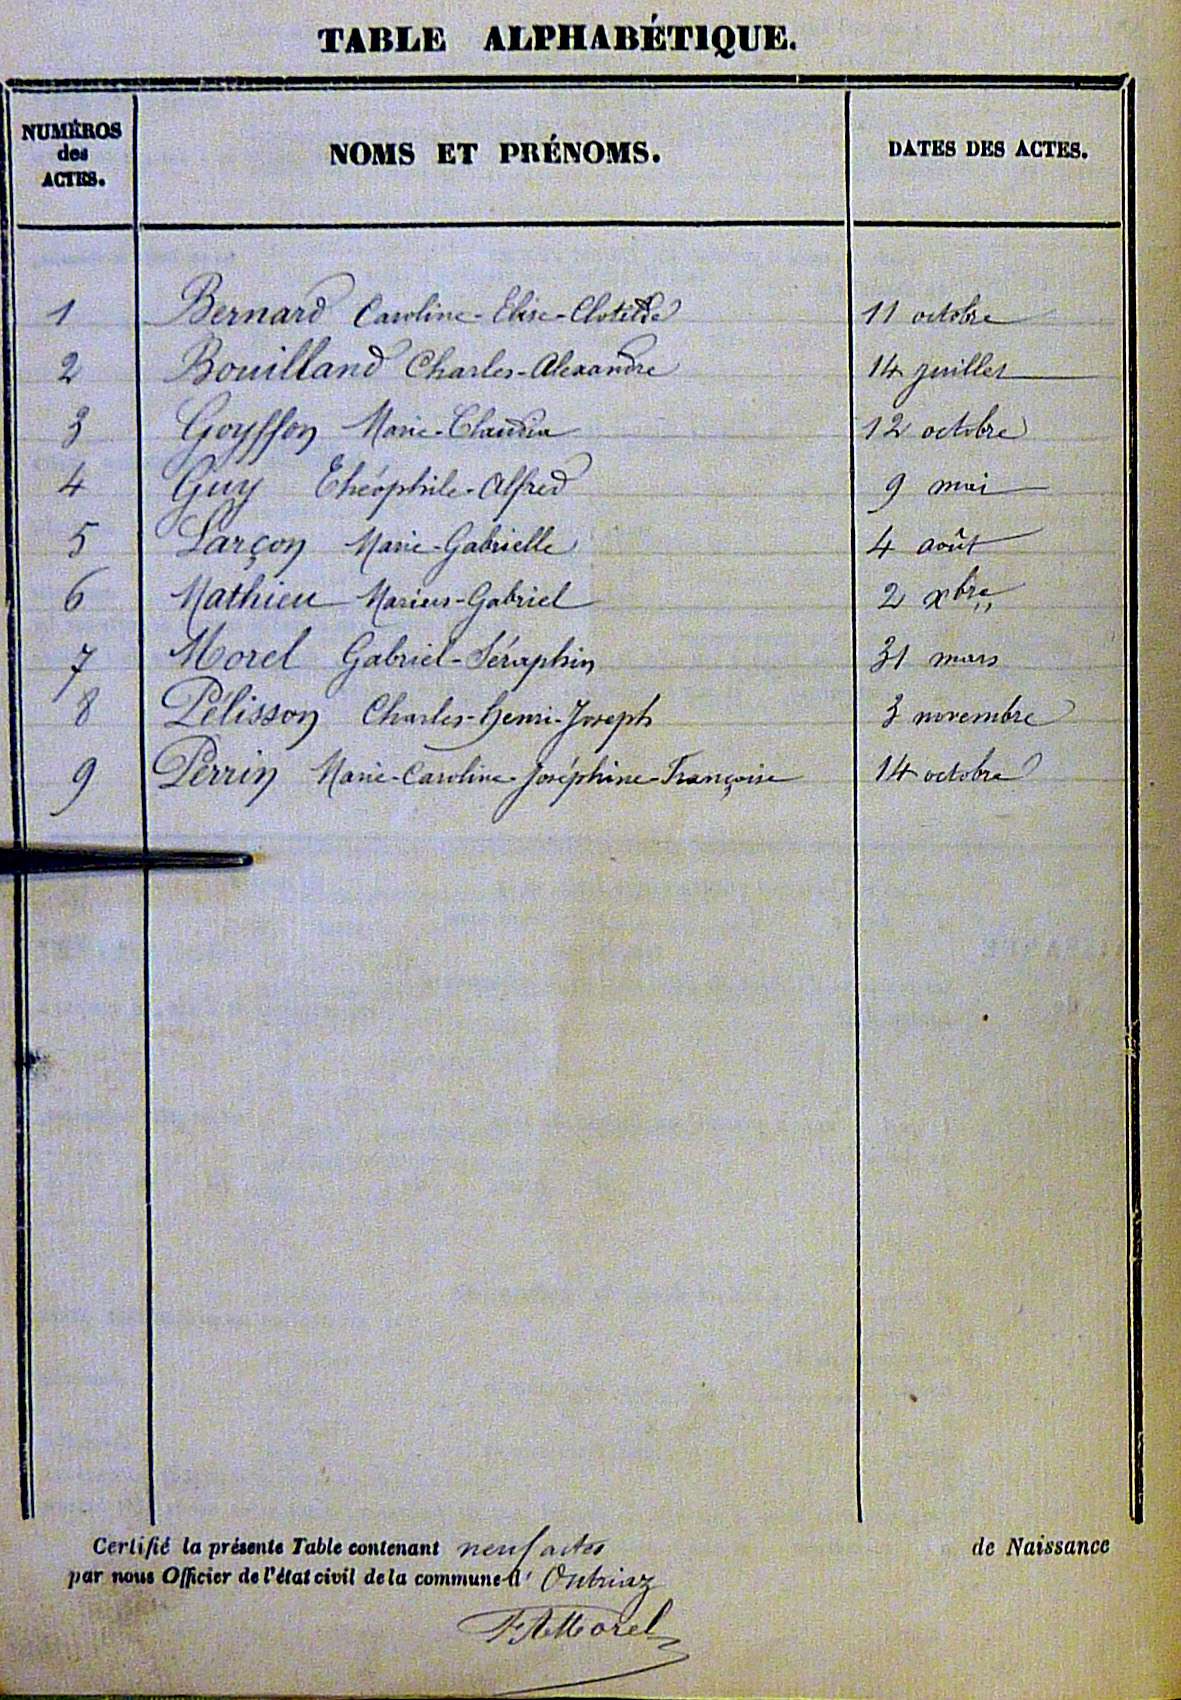 TABLE ALPHABÉTIQUE.
NUMÉROS des ACTES. NOMS ET PRÉNOMS. DATES DES ACTES.
1 Bernard Caroline-Elise-Clotilde 11 octobre
2 Bouilland Charles-Alexandre 14 juillet
3 Goyffon Marie-Claudia 12 octobre
4 Guy Théophile-Alfred 9 mai
5 Larçon Marie-Gabrielle 4 août
6 Mathieu Marius-Gabriel 2 xbre
7 Morel Gabriel-Séraphin 31 mars
8 Pélisson Charles-Henri-Joseph 3 novembre
9 Perrin Marie-Caroline-Joséphine-Françoise 14 octobre
Certifié la présente Table contenant neuf actes de Naissance
par nous Officier de l'état civil de la commune d' Outriaz
Morel